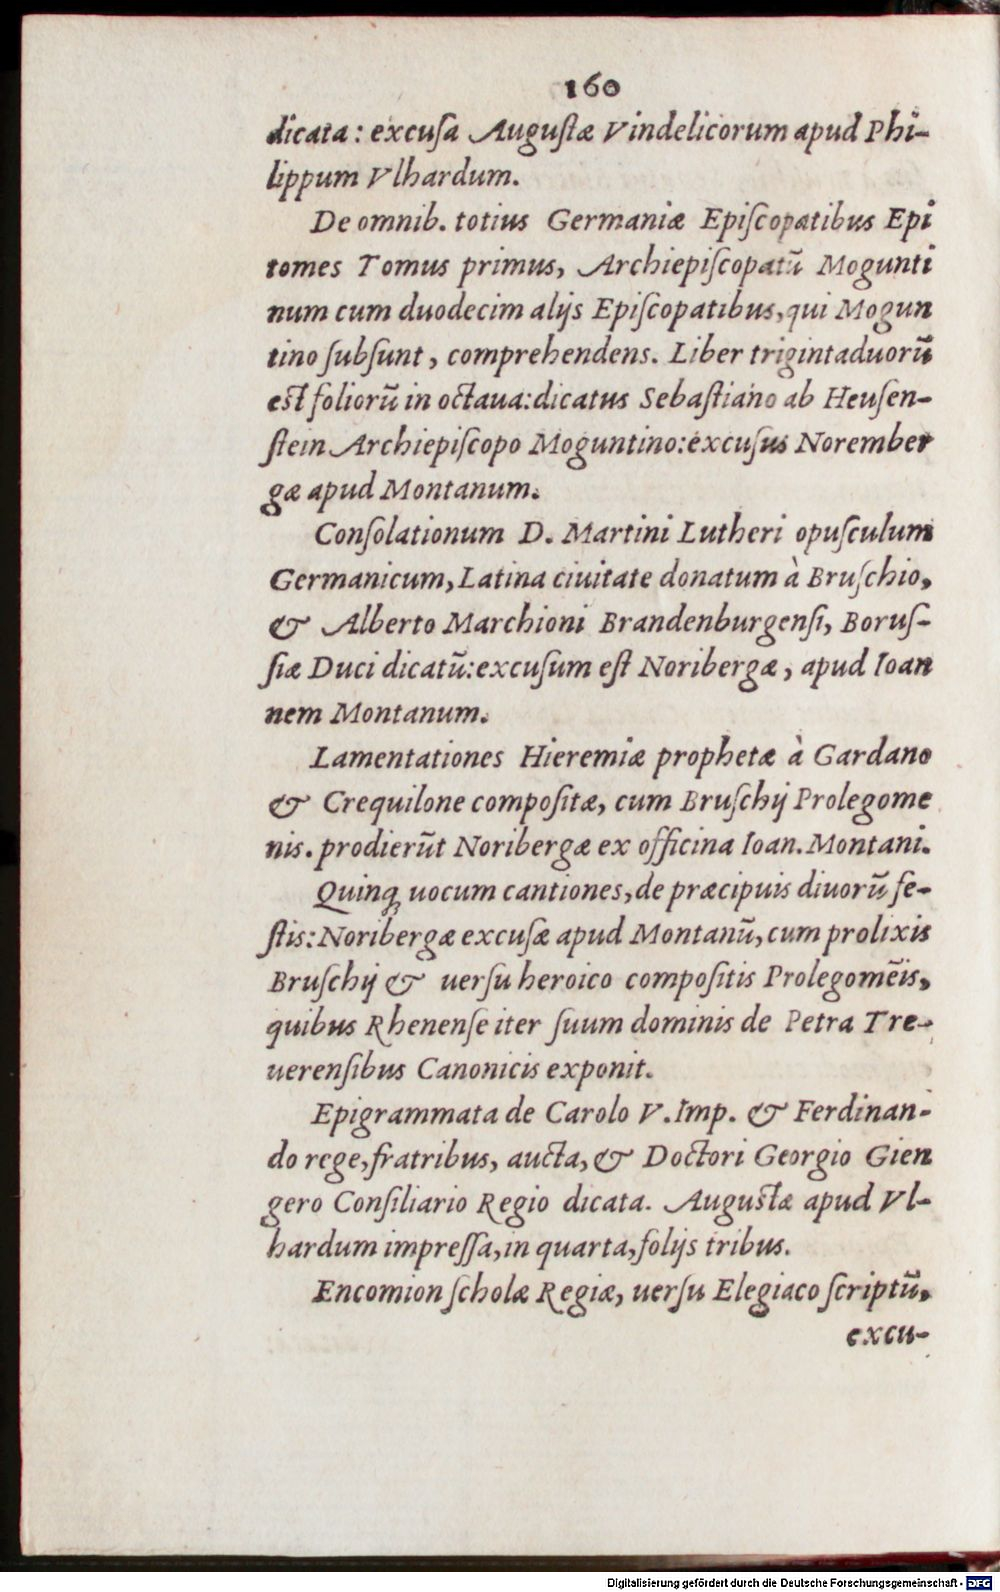 160
dicata: excuſa Auguſtæ Vindelicorum apud Phi-
lippum Vlhardum.
De omnib. totius Germaniæ Epiſcopatibus Epi
tomes Tomus primus, Archiepiſcopatũ Mogunti
num cum duodecim alijs Epiſcopatibus, qui Mogun
tino ſubſunt, comprehendens. Liber trigintaduorũ
eſt foliorũ in octaua: dicatus Sebaſtiano ab Heuſen-
ſtein Archiepiſcopo Moguntino: excuſus Norember
gæ apud Montanum.
Conſolationum D. Martini Lutheri opuſculum
Germanicum, Latina ciuitate donatum à Bruſchio,
& Alberto Marchioni Brandenburgenſi, Boruſ-
ſiæ Duci dicatũ: excuſum eſt Noribergæ, apud Ioan
nem Montanum.
Lamentationes Hieremiæ prophetæ à Gardano
& Crequilone compoſitæ, cum Bruſchij Prolegome
nis. prodierũt Noribergæ ex officina Ioan. Montani.
Quinq; uocum cantiones, de præcipuis diuorũ fe-
ſtis: Noribergæ excuſæ apud Montanũ, cum prolixis
Bruſchij & uerſu heroico compoſitis Prolegomẽis,
quibus Rhenenſe iter ſuum dominis de Petra Tre-
uerenſibus Canonicis exponit.
Epigrammata de Carolo V. Imp. & Ferdinan-
do rege, fratribus, aucta, & Doctori Georgio Gien
gero Conſiliario Regio dicata. Auguſtæ apud Vl-
hardum impreſſa, in quarta, folijs tribus.
Encomion ſcholæ Regiæ, uerſu Elegiaco ſcriptũ,
excu-
Digitalisierung gefördert durch die Deutsche Forschungsgemeinschaft - DFG